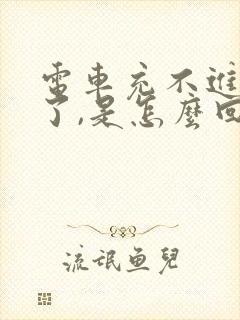 電車充不進
了,是怎麼回
流氓鱼兒